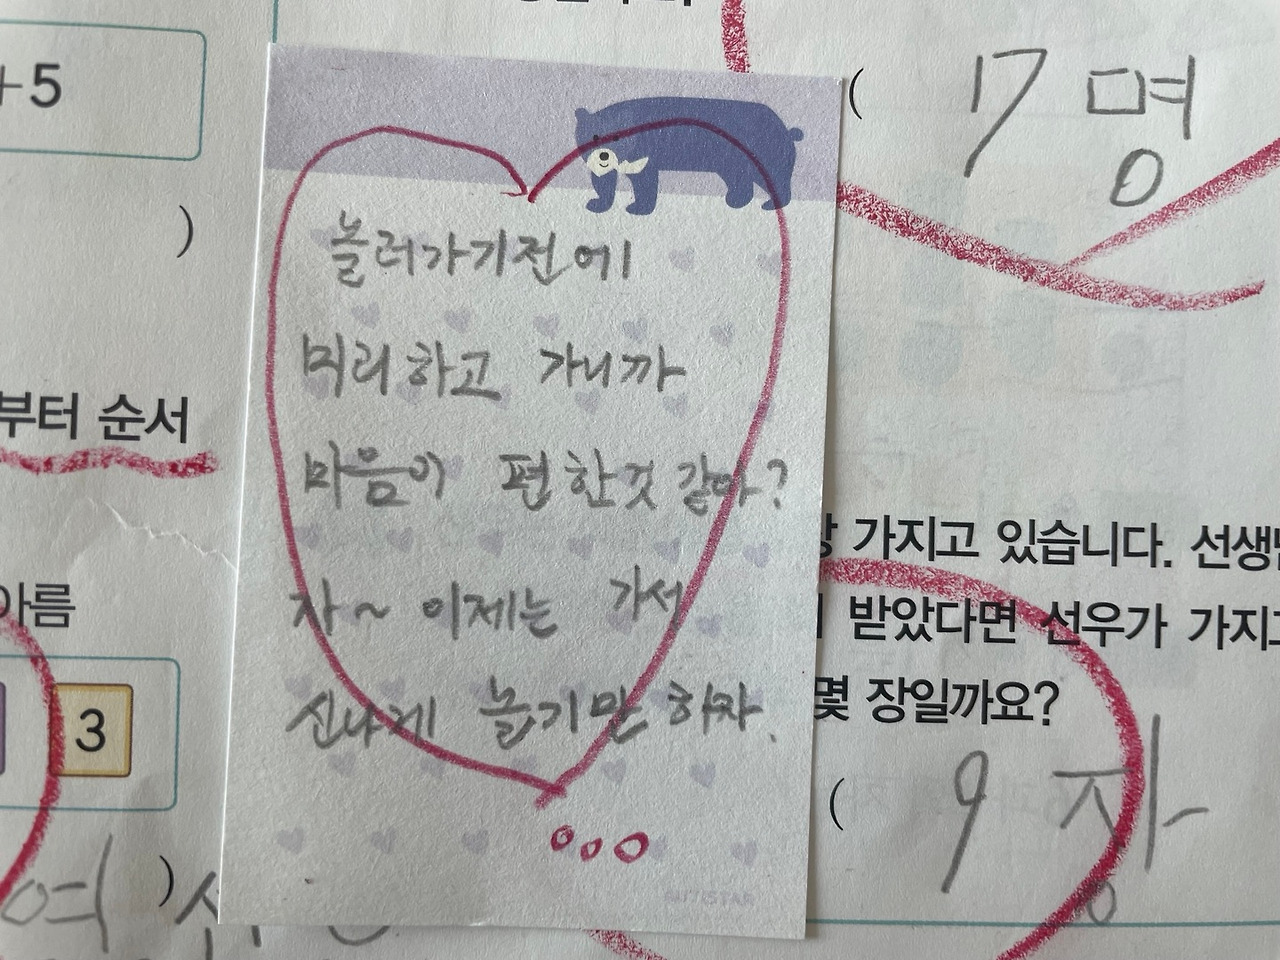 +5
( 17 명
)
놀러가기전에
미리하고 가니까
마음이 편한것 같아?
자~ 이제는 가서
신나게 놀기만 하자.
부터 순서
가지고 있습니다. 선생
아름
받았다면 선우가 가지고
3
몇 장일까요?
( 9 장
여 )